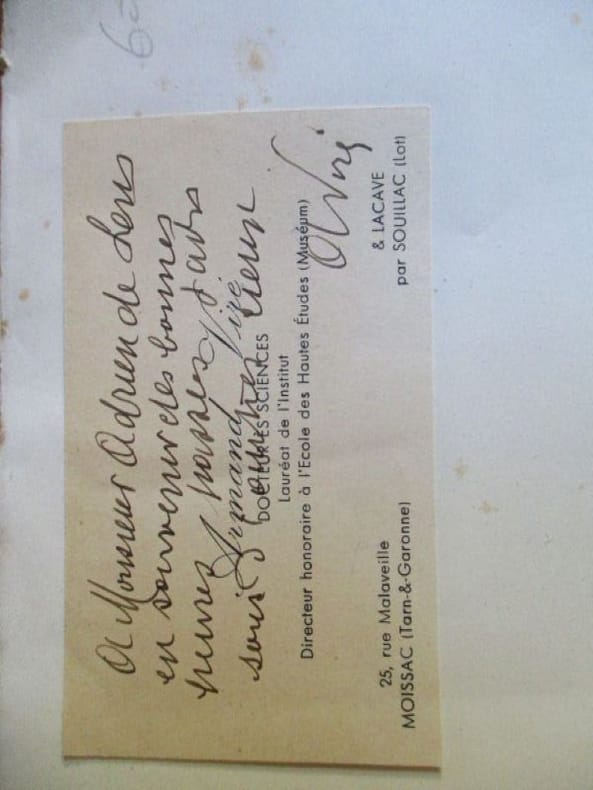 A Monsieur Adrien de Lens
en souvenir des bonnes
heures passées jadis
sous
Armand Viré
DOCTEUR ÈS SCIENCES
Lauréat de l'Institut
Directeur honoraire à l'Ecole des Hautes Études (Muséum)
A Viré
25, rue Malaveille
MOISSAC (Tarn-&-Garonne)
& LACAVE
par SOUILLAC (Lot)